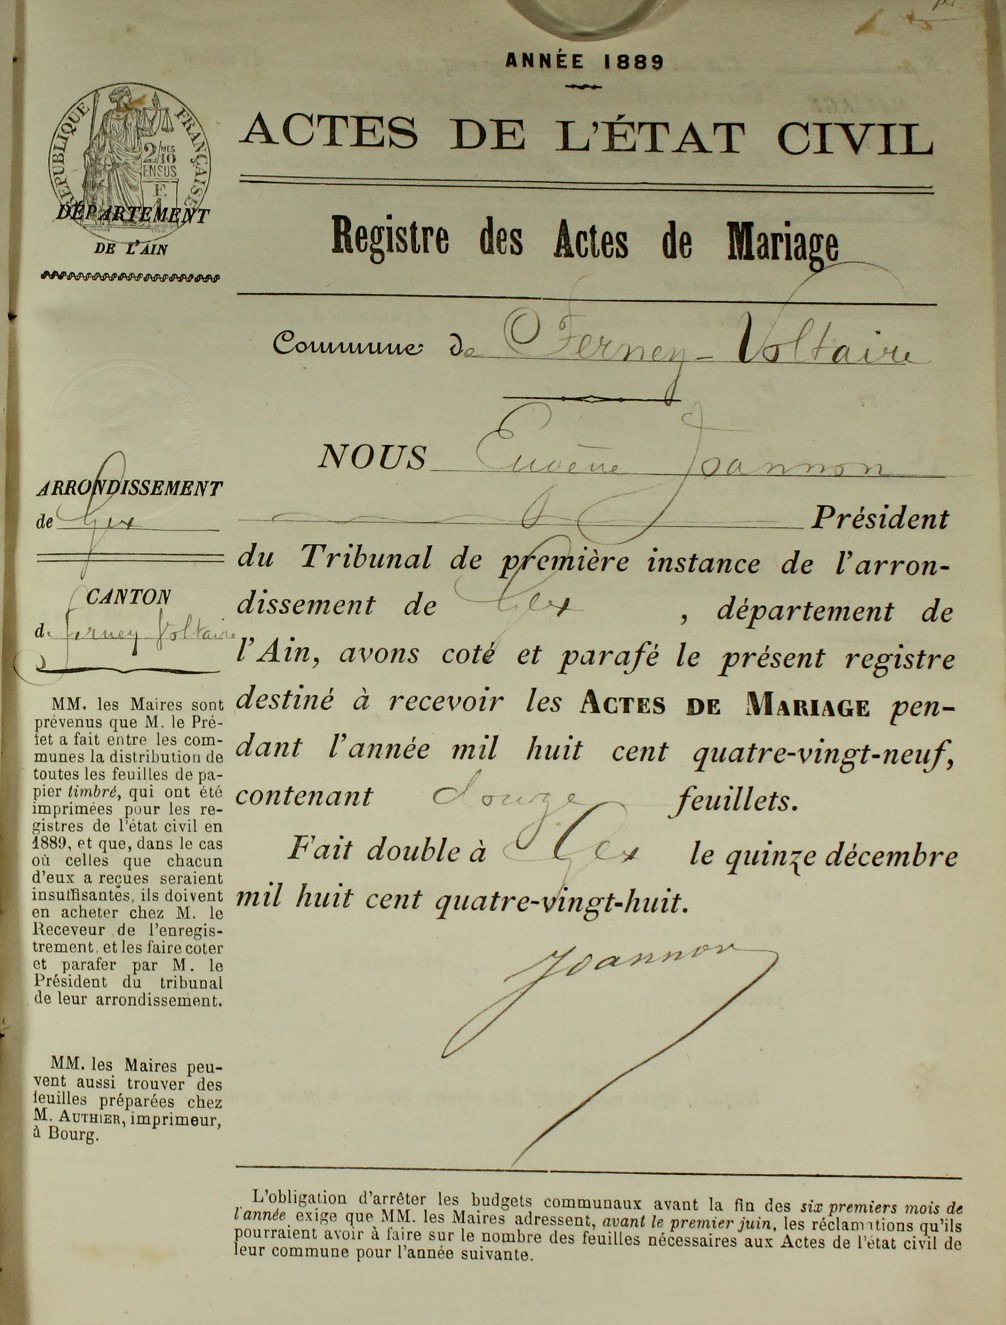 ANNÉE 1889
ACTES DE L'ÉTAT CIVIL
RÉPUBLIQUE FRANÇAISE
2/10MES
EN SUS
DÉPARTEMENT
DE L'AIN
Registre des Actes de Mariage
Commune de Ferney-Voltaire
NOUS Eugène Joannon
Président
du Tribunal de première instance de l'arron-
dissement de Gex, département de
l'Ain, avons coté et parafé le présent registre
destiné à recevoir les ACTES DE MARIAGE pen-
dant l'année mil huit cent quatre-vingt-neuf,
contenant douze feuillets.
Fait double à Gex le quinze décembre
mil huit cent quatre-vingt-huit.
Joannon
ARRONDISSEMENT
de Gex
CANTON
de Ferney-Voltaire
MM. les Maires sont
prévenus que M. le Pré-
fet a fait entre les com-
munes la distribution de
toutes les feuilles de pa-
pier timbré, qui ont été
imprimées pour les re-
gistres de l'état civil en
1889, et que, dans le cas
où celles que chacun
d'eux a reçues seraient
insuffisantes, ils doivent
en acheter chez M. le
Receveur de l'enregis-
trement, et les faire coter
et parafer par M. le
Président du tribunal
de leur arrondissement.
MM. les Maires peu-
vent aussi trouver des
feuilles préparées chez
M. AUTHIER, imprimeur,
à Bourg.
L'obligation d'arrêter les budgets communaux avant la fin des six premiers mois de
l'année exige que MM. les Maires adressent, avant le premier juin, les réclamations qu'ils
pourraient avoir à faire sur le nombre des feuilles nécessaires aux Actes de l'état civil de
leur commune pour l'année suivante.